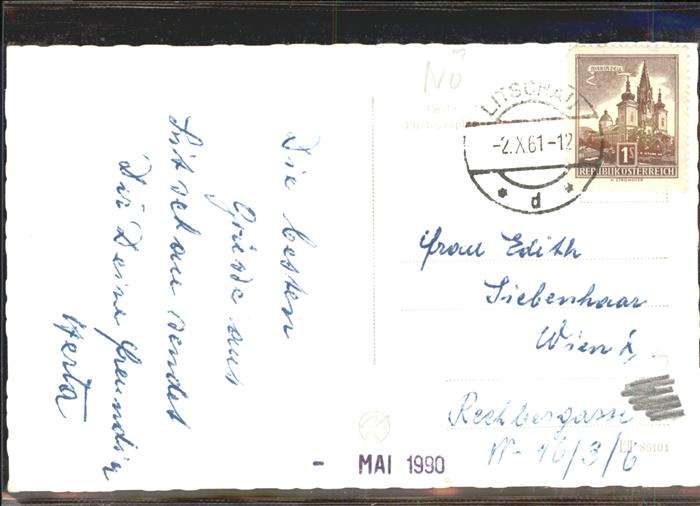 Die besten
Grüsse aus
Litschau sendet
Dir Deine Freundin
Herta
NÖ
LITSCHAU
-2.X.61-12
d
MARIAZELL
1S
REPUBLIK ÖSTERREICH
Frau Edith
Siebenhaar
Wien
Rechbergasse
16/3/6
- MAI 1990